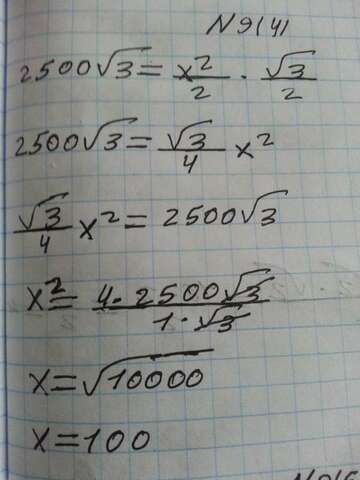 N9(4)
2500√3 = x²/2 · √3/2
2500√3 = √3/4 x²
√3/4 x² = 2500√3
x² = 4·2500√3/1·√3
x = √10000
x = 100